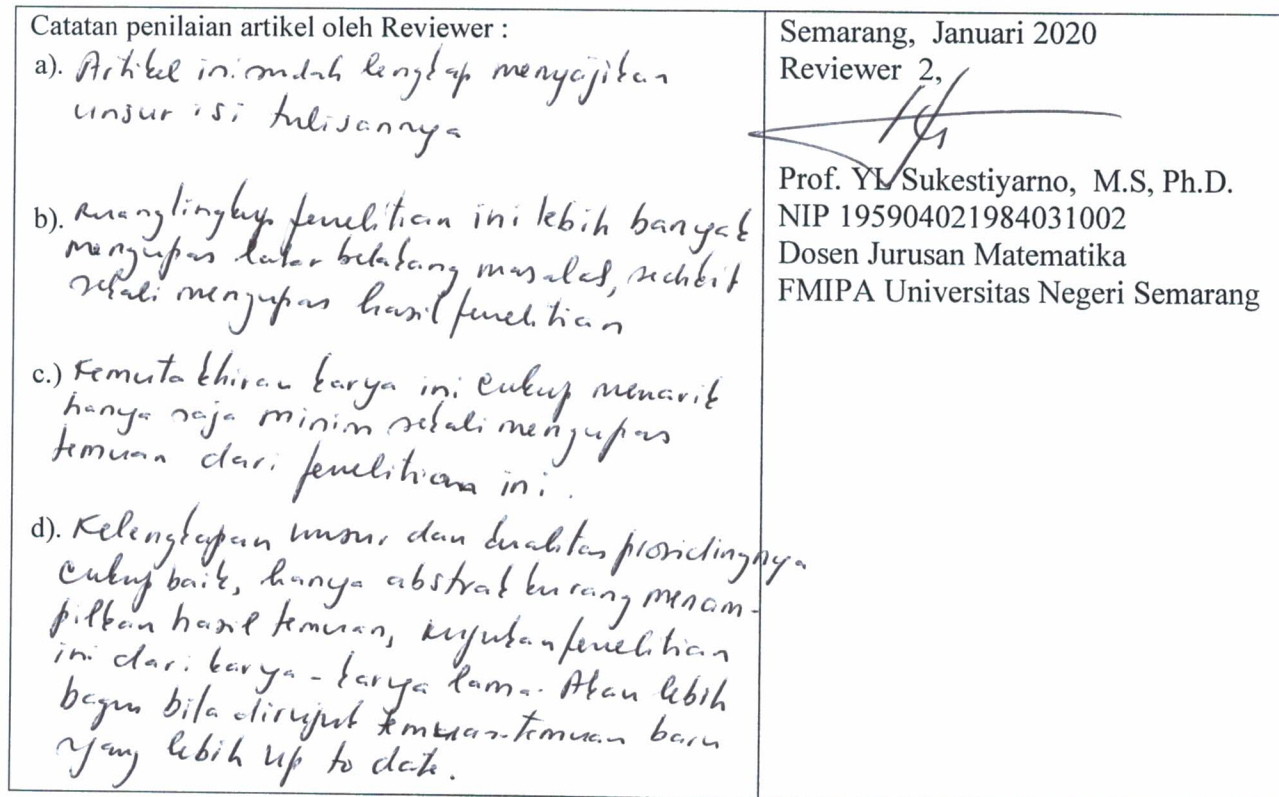 Catatan penilaian artikel oleh Reviewer :
a). Artikel ini sudah lengkap menyajikan
unsur isi tulisannya
b). Ruang lingkup penelitian ini lebih banyak
mengupas latar belakang masalah, sedikit
sekali mengupas hasil penelitian
c.) Kemutakhiran karya ini cukup menarik
hanya saja minim sekali mengupas
temuan dari penelitian ini.
d). Kelengkapan unsur dan kualitas prosidingnya
cukup baik, hanya abstrak kurang menam-
pilkan hasil temuan, rujukan penelitian
ini dari karya-karya lama. Akan lebih
bagus bila dirujuk temuan-temuan baru
yang lebih up to date.
Semarang, Januari 2020
Reviewer 2,
Prof. YL Sukestiyarno, M.S, Ph.D.
NIP 195904021984031002
Dosen Jurusan Matematika
FMIPA Universitas Negeri Semarang